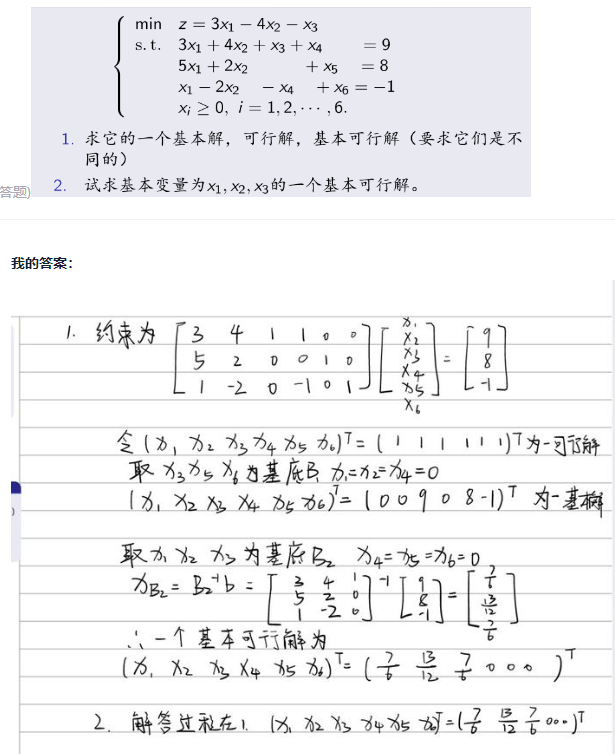 min z = 3x₁ − 4x₂ − x₃
s.t. 3x₁ + 4x₂ + x₃ + x₄ = 9
5x₁ + 2x₂ + x₅ = 8
x₁ − 2x₂ − x₄ + x₆ = −1
xᵢ ≥ 0, i = 1, 2, ⋯ , 6.
1. 求它的一个基本解，可行解，基本可行解（要求它们是不
同的）
答题)
2. 试求基本变量为x₁, x₂, x₃的一个基本可行解。
我的答案:
1. 约束为 [3 4 1 1 0 0; 5 2 0 0 1 0; 1 -2 0 -1 0 1] [x₁ x₂ x₃ x₄ x₅ x₆] = [9 8 -1]
令 (x₁ x₂ x₃ x₄ x₅ x₆)ᵀ = (1 1 1 1 1 1)ᵀ 为一可行解
取 x₃ x₅ x₆ 为基底B₁ x₁=x₂=x₄=0
(x₁ x₂ x₃ x₄ x₅ x₆)ᵀ = (0 0 9 0 8 -1)ᵀ 为一基本解
取 x₁ x₂ x₃ 为基底B₂ x₄=x₅=x₆=0
x_B₂ = B₂⁻¹b = [3 4 1; 5 2 0; 1 -2 0]⁻¹ [9 8 -1] = [7/6 13/12 7/6]
∴ 一个基本可行解为
(x₁ x₂ x₃ x₄ x₅ x₆)ᵀ = (7/6 13/12 7/6 0 0 0)ᵀ
2. 解答过程在1. (x₁ x₂ x₃ x₄ x₅ x₆)ᵀ = (7/6 13/12 7/6 0 0 0)ᵀ